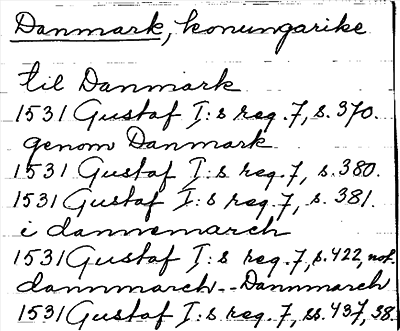 Danmark, konungarike
til Danmark
1531 Gustaf I:s reg. 7, s. 370.
genom Danmark
1531 Gustaf I:s reg. 7, s. 380.
1531 Gustaf I:s reg. 7, s. 381.
i dannemarch
1531 Gustaf I:s reg. 7, s. 422, not.
dannmarch - - Dannmarch
1531 Gustaf I:s reg. 7, ss. 437, 38.